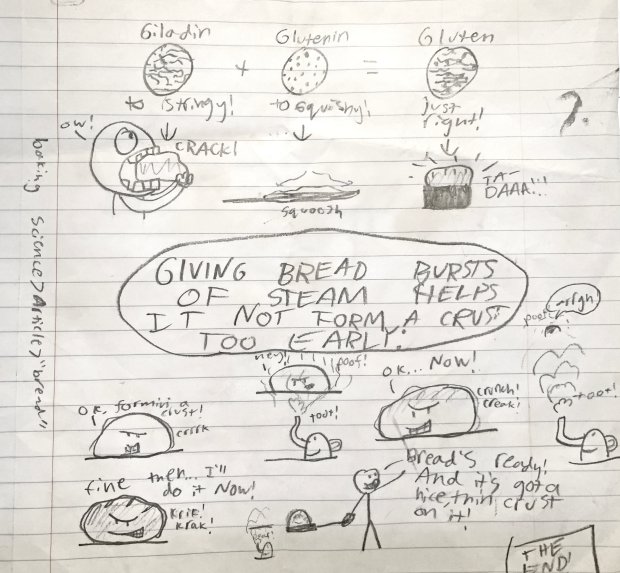 Giladin + Glutenin = Gluten
to stringy! to squishy! just
right!
ow!
CRACK!
squoosh
TA-
DAAA!!!
?
baking science>Article>"bread"
GIVING BREAD BURSTS
OF STEAM HELPS
IT NOT FORM A CRUST
TOO EARLY!
OK, formin' a
crust!
crrrk
hey!
poof!
toot!
OK... Now!
crunch!
creak!
arrgh
poof!
toot!
fine then... I'll
do it Now!
krik!
krak!
Bread's ready!
And it's got a
nice, thin crust
on it!
THE
END!